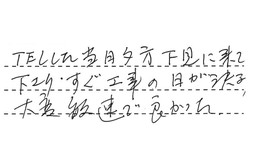 TELLした当日夕方下見に来て
下さり、すぐ工事の日が決り
大変敏速で良かった。